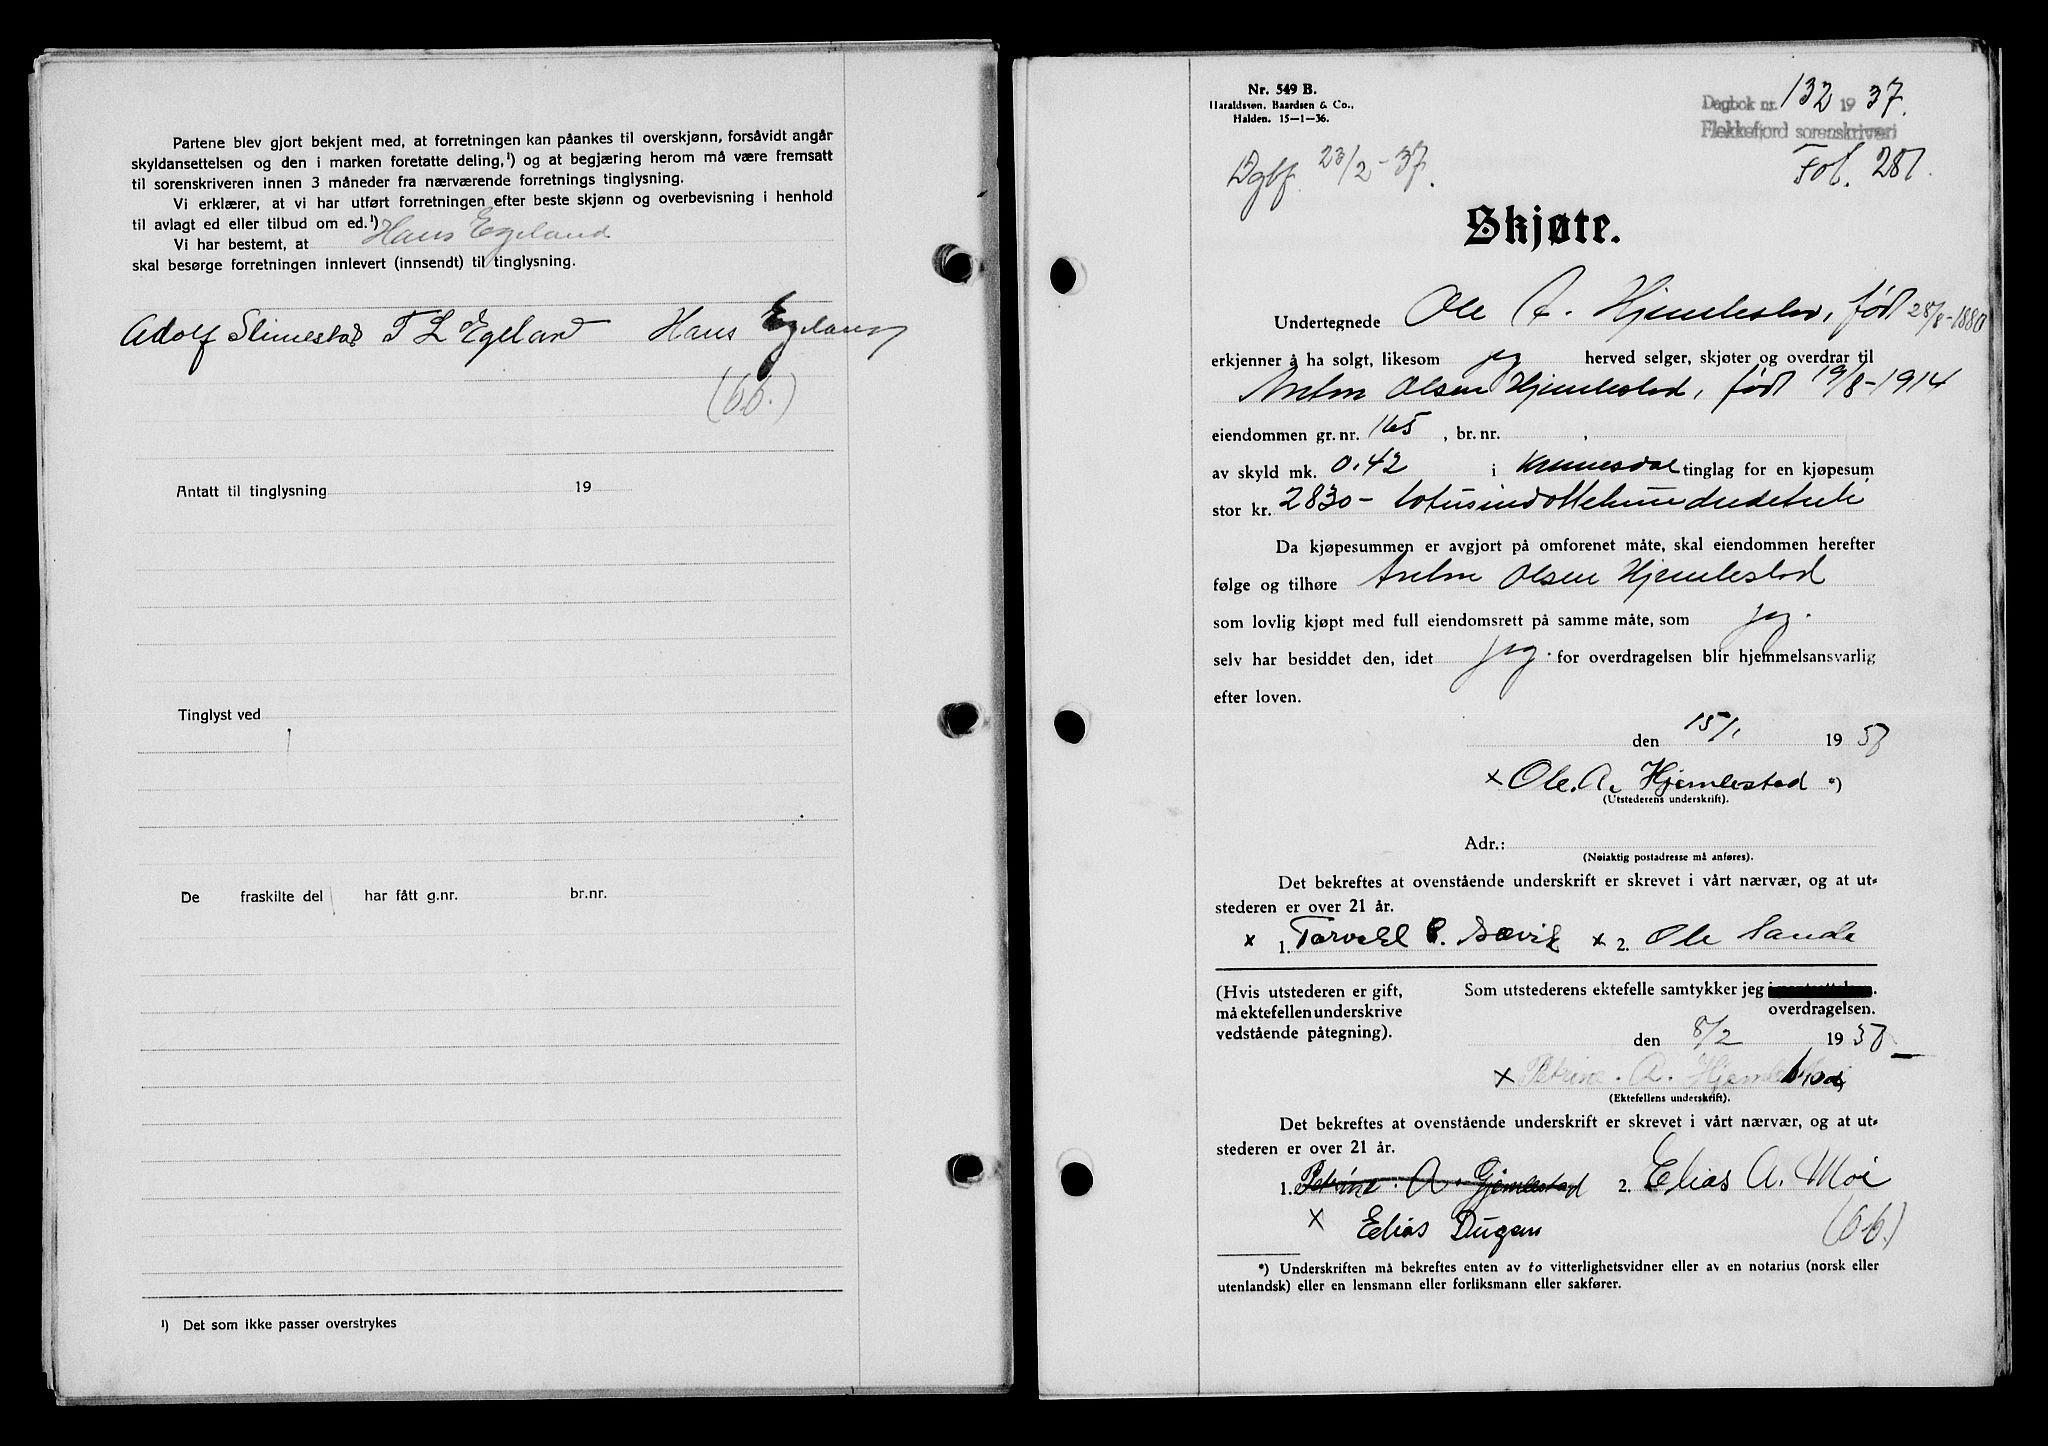 Partene blev gjort bekjent med, at forretningen kan påankes til overskjønn, forsåvidt angår
skyldansettelsen og den i marken foretatte deling,¹) og at begjæring herom må være fremsatt
til sorenskriveren innen 3 måneder fra nærværende forretnings tinglysning.
Vi erklærer, at vi har utført forretningen efter beste skjønn og overbevisning i henhold
til avlagt ed eller tilbud om ed.¹)
Vi har bestemt, at Hans Egeland
skal besørge forretningen innlevert (innsendt) til tinglysning.
Adolf Slimestad T L Egeland Hans Egeland
(6b.)
Antatt til tinglysning 19
Tinglyst ved
De fraskilte del har fått g.nr. br.nr.
¹) Det som ikke passer overstrykes
Nr. 549 B.
Haraldssøn, Baardsen & Co.,
Halden. 15-1-36.
Dagbok nr. 132 19 37.
Flekkefjord sorenskriveri
Dgbf. 23/2-37.
Fol. 281.
Skjøte.
Undertegnede Ole A. Hjemlestad, født 28/8-1880
erkjenner å ha solgt, likesom jeg herved selger, skjøter og overdrar til
Anton Olsen Hjemlestad, født 19/8-1914
eiendommen gr. nr. 165, br. nr. ,
av skyld mk. 0.42 i Kvinesdal tinglag for en kjøpesum
stor kr. 2830- totusindottehundredetreti
Da kjøpesummen er avgjort på omforenet måte, skal eiendommen herefter
følge og tilhøre Anton Olsen Hjemlestad
som lovlig kjøpt med full eiendomsrett på samme måte, som jeg
selv har besiddet den, idet jeg for overdragelsen blir hjemmelsansvarlig
efter loven.
den 15/1 19 37
x Ole. A. Hjemlestad *)
(Utstederens underskrift).
Adr.:
(Nøiaktig postadresse må anføres).
Det bekreftes at ovenstående underskrift er skrevet i vårt nærvær, og at ut-
stederen er over 21 år.
x 1. Torvald Sævik x 2. Ole Sande
(Hvis utstederen er gift,
må ektefellen underskrive
vedstående påtegning).
Som utstederens ektefelle samtykker jeg
overdragelsen.
den 8/2 19 37
x Petrine. A. Hjemlestad
(Ektefellens underskrift).
Det bekreftes at ovenstående underskrift er skrevet i vårt nærvær, og at ut-
stederen er over 21 år.
1. Petrine. A. Gjemlestad 2. Elias A. Moi
x Elias Dugan
(6b.)
*) Underskriften må bekreftes enten av to vitterlighetsvidner eller av en notarius (norsk eller
utenlandsk) eller en lensmann eller forliksmann eller sakfører.